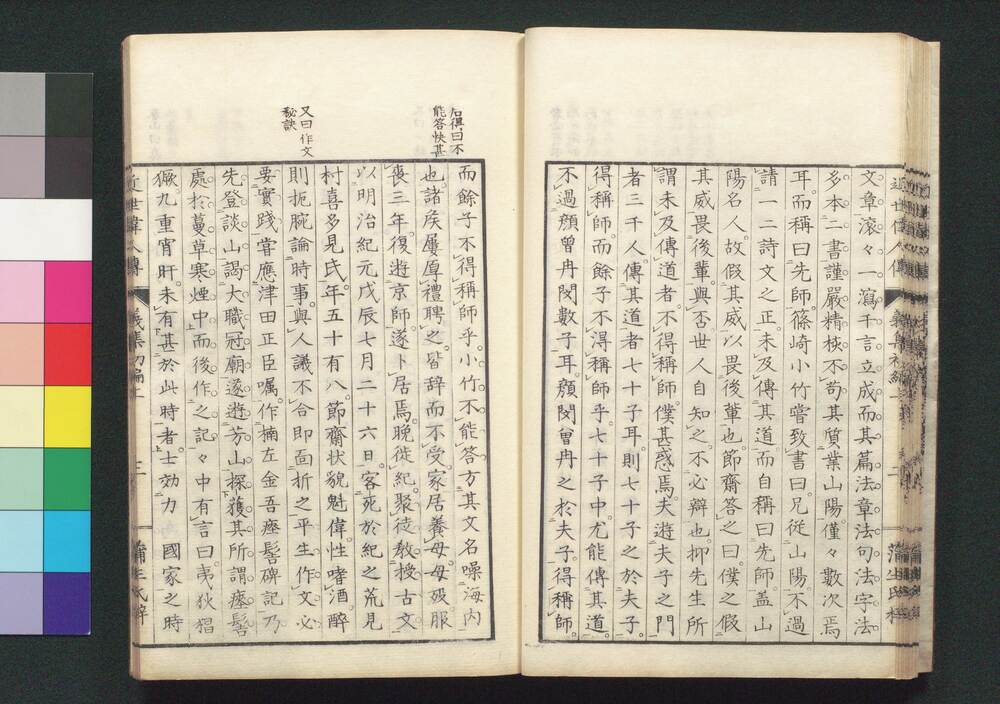 文章滾々一瀉千言立成而其篇法章法句法字法
多本二書謹嚴精核不苟其質業山陽僅々數次焉
耳而稱曰先師篠崎小竹嘗致書曰兄從山陽不過
請一二詩文之正未及傳其道而自稱曰先師盖山
陽名人故假其威以畏後輩也節齋答之曰僕之假
其威畏後輩與否世人自知之不必辯也抑先生所
謂未及傳道者不得稱師僕甚惑焉夫遊夫子之門
者三千人傳其道者七十子耳則七十子之於夫子
得稱師而餘子不得稱師乎七十子中尤能傳其道
不過顏曾冉閔數子耳顏閔曾冉之於夫子得稱師
后得曰不
能答快甚
而餘子不得稱師乎小竹不能答方其文名噪海内
也諸矦屢厚禮聘之皆辞而不受家居養母母歿服
喪三年復遊京師遂卜居焉晚徙紀聚徒教授古文
以明治紀元戊辰七月二十六日客死於紀之荒見
村喜多見氏年五十有八節齋状貌魁偉性嗜酒醉
又曰作文
秘訣
則扼腕論時事與人議不合即面折之平生作文必
要實踐嘗應津田正臣嘱作楠左金吾瘞髻碑記乃
先登談山謁大職冠廟遂遊芳山探獲其所謂瘞髻
處於蔓草寒煙中而後作之記々中有言曰夷狄猖
獗九重宵旰未有甚於此時者士効力　國家之時
近世偉人傳
義集初編上
三
蒲生氏梓